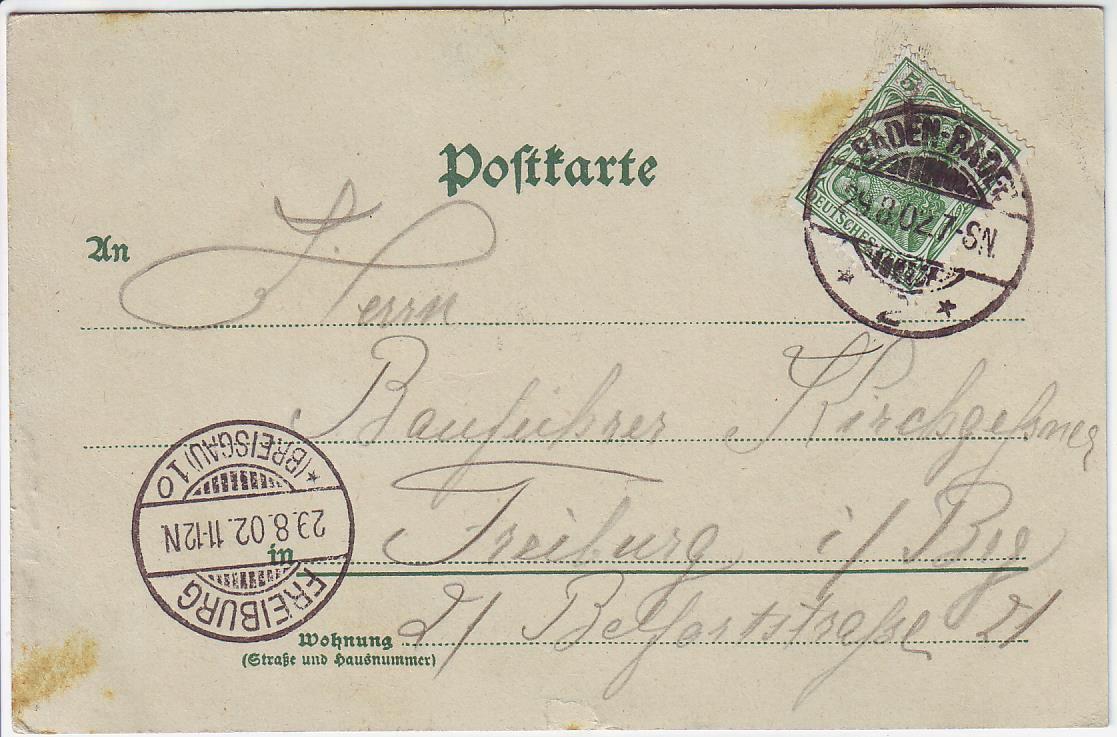 Postkarte
5
DEUTSCHES
BADEN-BADEN
29.8.02.7-8N.
2
An
Herrn
Bauführer Kirchgeßner
in Freiburg i/ Bsg
Wohnung 21 Belfortstraße 21
(Straße und Hausnummer)
* (BREISGAU) 1 o
29.8.02.11-12N
FREIBURG